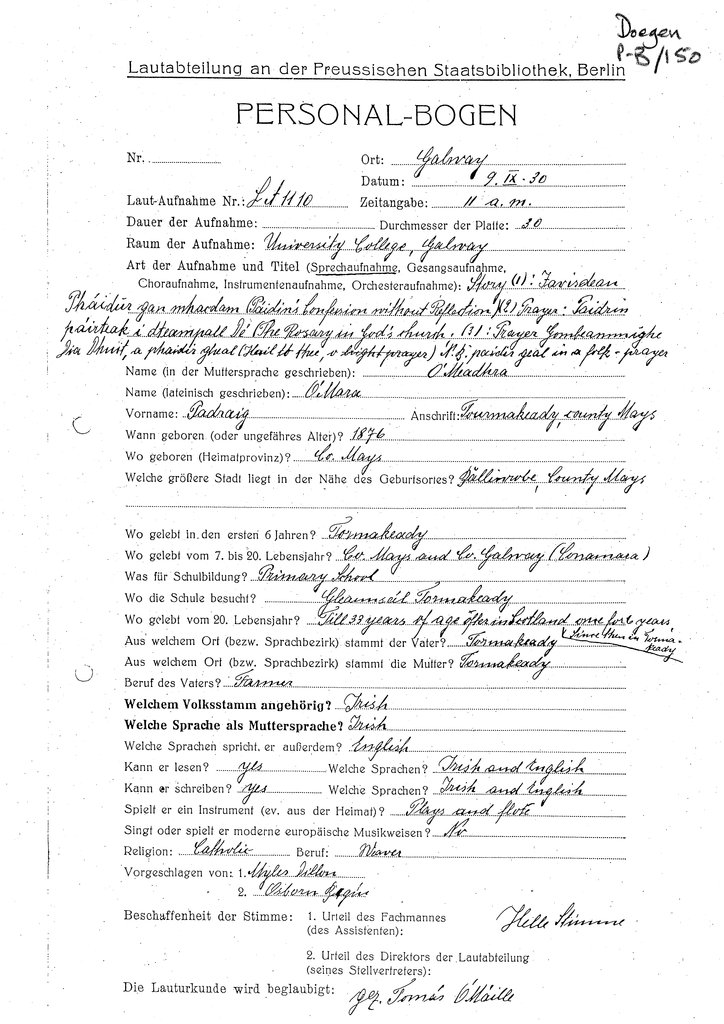 Doegen
P-B/150
Lautabteilung an der Preussischen Staatsbibliothek, Berlin
PERSONAL-BOGEN
Nr. Ort: Galway
Datum: 9. IX. 30
Laut-Aufnahme Nr.: LA 1110 Zeitangabe: 11 a.m.
Dauer der Aufnahme: Durchmesser der Platte: 30
Raum der Aufnahme: University College, Galway
Art der Aufnahme und Titel (Sprechaufnahme, Gesangsaufnahme,
Choraufnahme, Instrumentenaufnahme, Orchesteraufnahme): Story (1): Favisdean
Pháidín gan mhacdam (Páidín's Confession without Reflection) (2) Prayer: Paidrín
páirteak i dteampall Dé (The Rosary in God's church. (3): Prayer Gombeannuighe
Dia Dhuit, a phaidir gheal (Hail to thee, o bright prayer) N.B. paidir geal in a folk-prayer
Name (in der Muttersprache geschrieben): O'Meadhra
Name (lateinisch geschrieben): O'Mara
Vorname: Padraig Anschrift: Tourmakeady, county Mayo
Wann geboren (oder ungefähres Alter)? 1876
Wo geboren (Heimatprovinz)? Co. Mayo
Welche größere Stadt liegt in der Nähe des Geburtsortes? Ballinrobe, County Mayo
Wo gelebt in den ersten 6 Jahren? Tormakeady
Wo gelebt vom 7. bis 20. Lebensjahr? Co. Mayo and Co. Galway (Conamara)
Was für Schulbildung? Primary School
Wo die Schule besucht? Gleannsáil Tormakeady
Wo gelebt vom 20. Lebensjahr? Till 33 years of age often in Scotland one for 6 years
Since then in Torma-
keady
Aus welchem Ort (bezw. Sprachbezirk) stammt der Vater? Tormakeady
Aus welchem Ort (bezw. Sprachbezirk) stammt die Mutter? Tormakeady
Beruf des Vaters? Farmer
Welchem Volksstamm angehörig? Irish
Welche Sprache als Muttersprache? Irish
Welche Sprachen spricht er außerdem? English
Kann er lesen? yes Welche Sprachen? Irish and English
Kann er schreiben? yes Welche Sprachen? Irish and English
Spielt er ein Instrument (ev. aus der Heimat)? Plays and flote
Singt oder spielt er moderne europäische Musikweisen? No
Religion: Catholic Beruf: Waver
Vorgeschlagen von: 1. Myles Dillon
2. Osborn Bergin
Beschaffenheit der Stimme: 1. Urteil des Fachmannes
(des Assistenten): Helle Stimme
2. Urteil des Direktors der Lautabteilung
(seines Stellvertreters):
Die Lauturkunde wird beglaubigt: gez. Tomás O'Máille